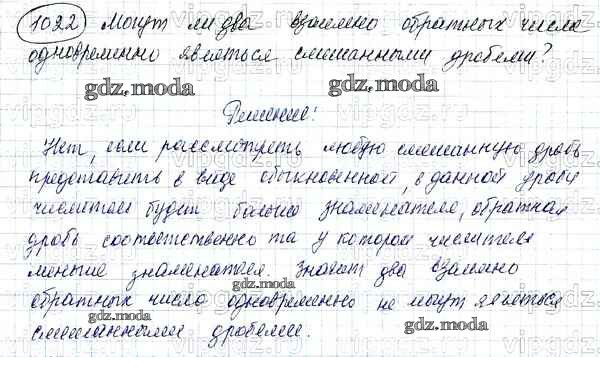 1022 Могут ли два взаимно обратных числа
одновременно являться смешанными дробями?
gdz.moda gdz.moda
Решение:
Нет, если рассмотреть любую смешанную дробь
представить в виде обыкновенной, в данной дроби
числитель будет больше знаменателя, обратная
дробь соответственно та у которой числитель
меньше знаменателя. Значит два взаимно
gdz.moda
обратных числа одновременно не могут являться
gdz.moda gdz.moda
смешанными дробями.